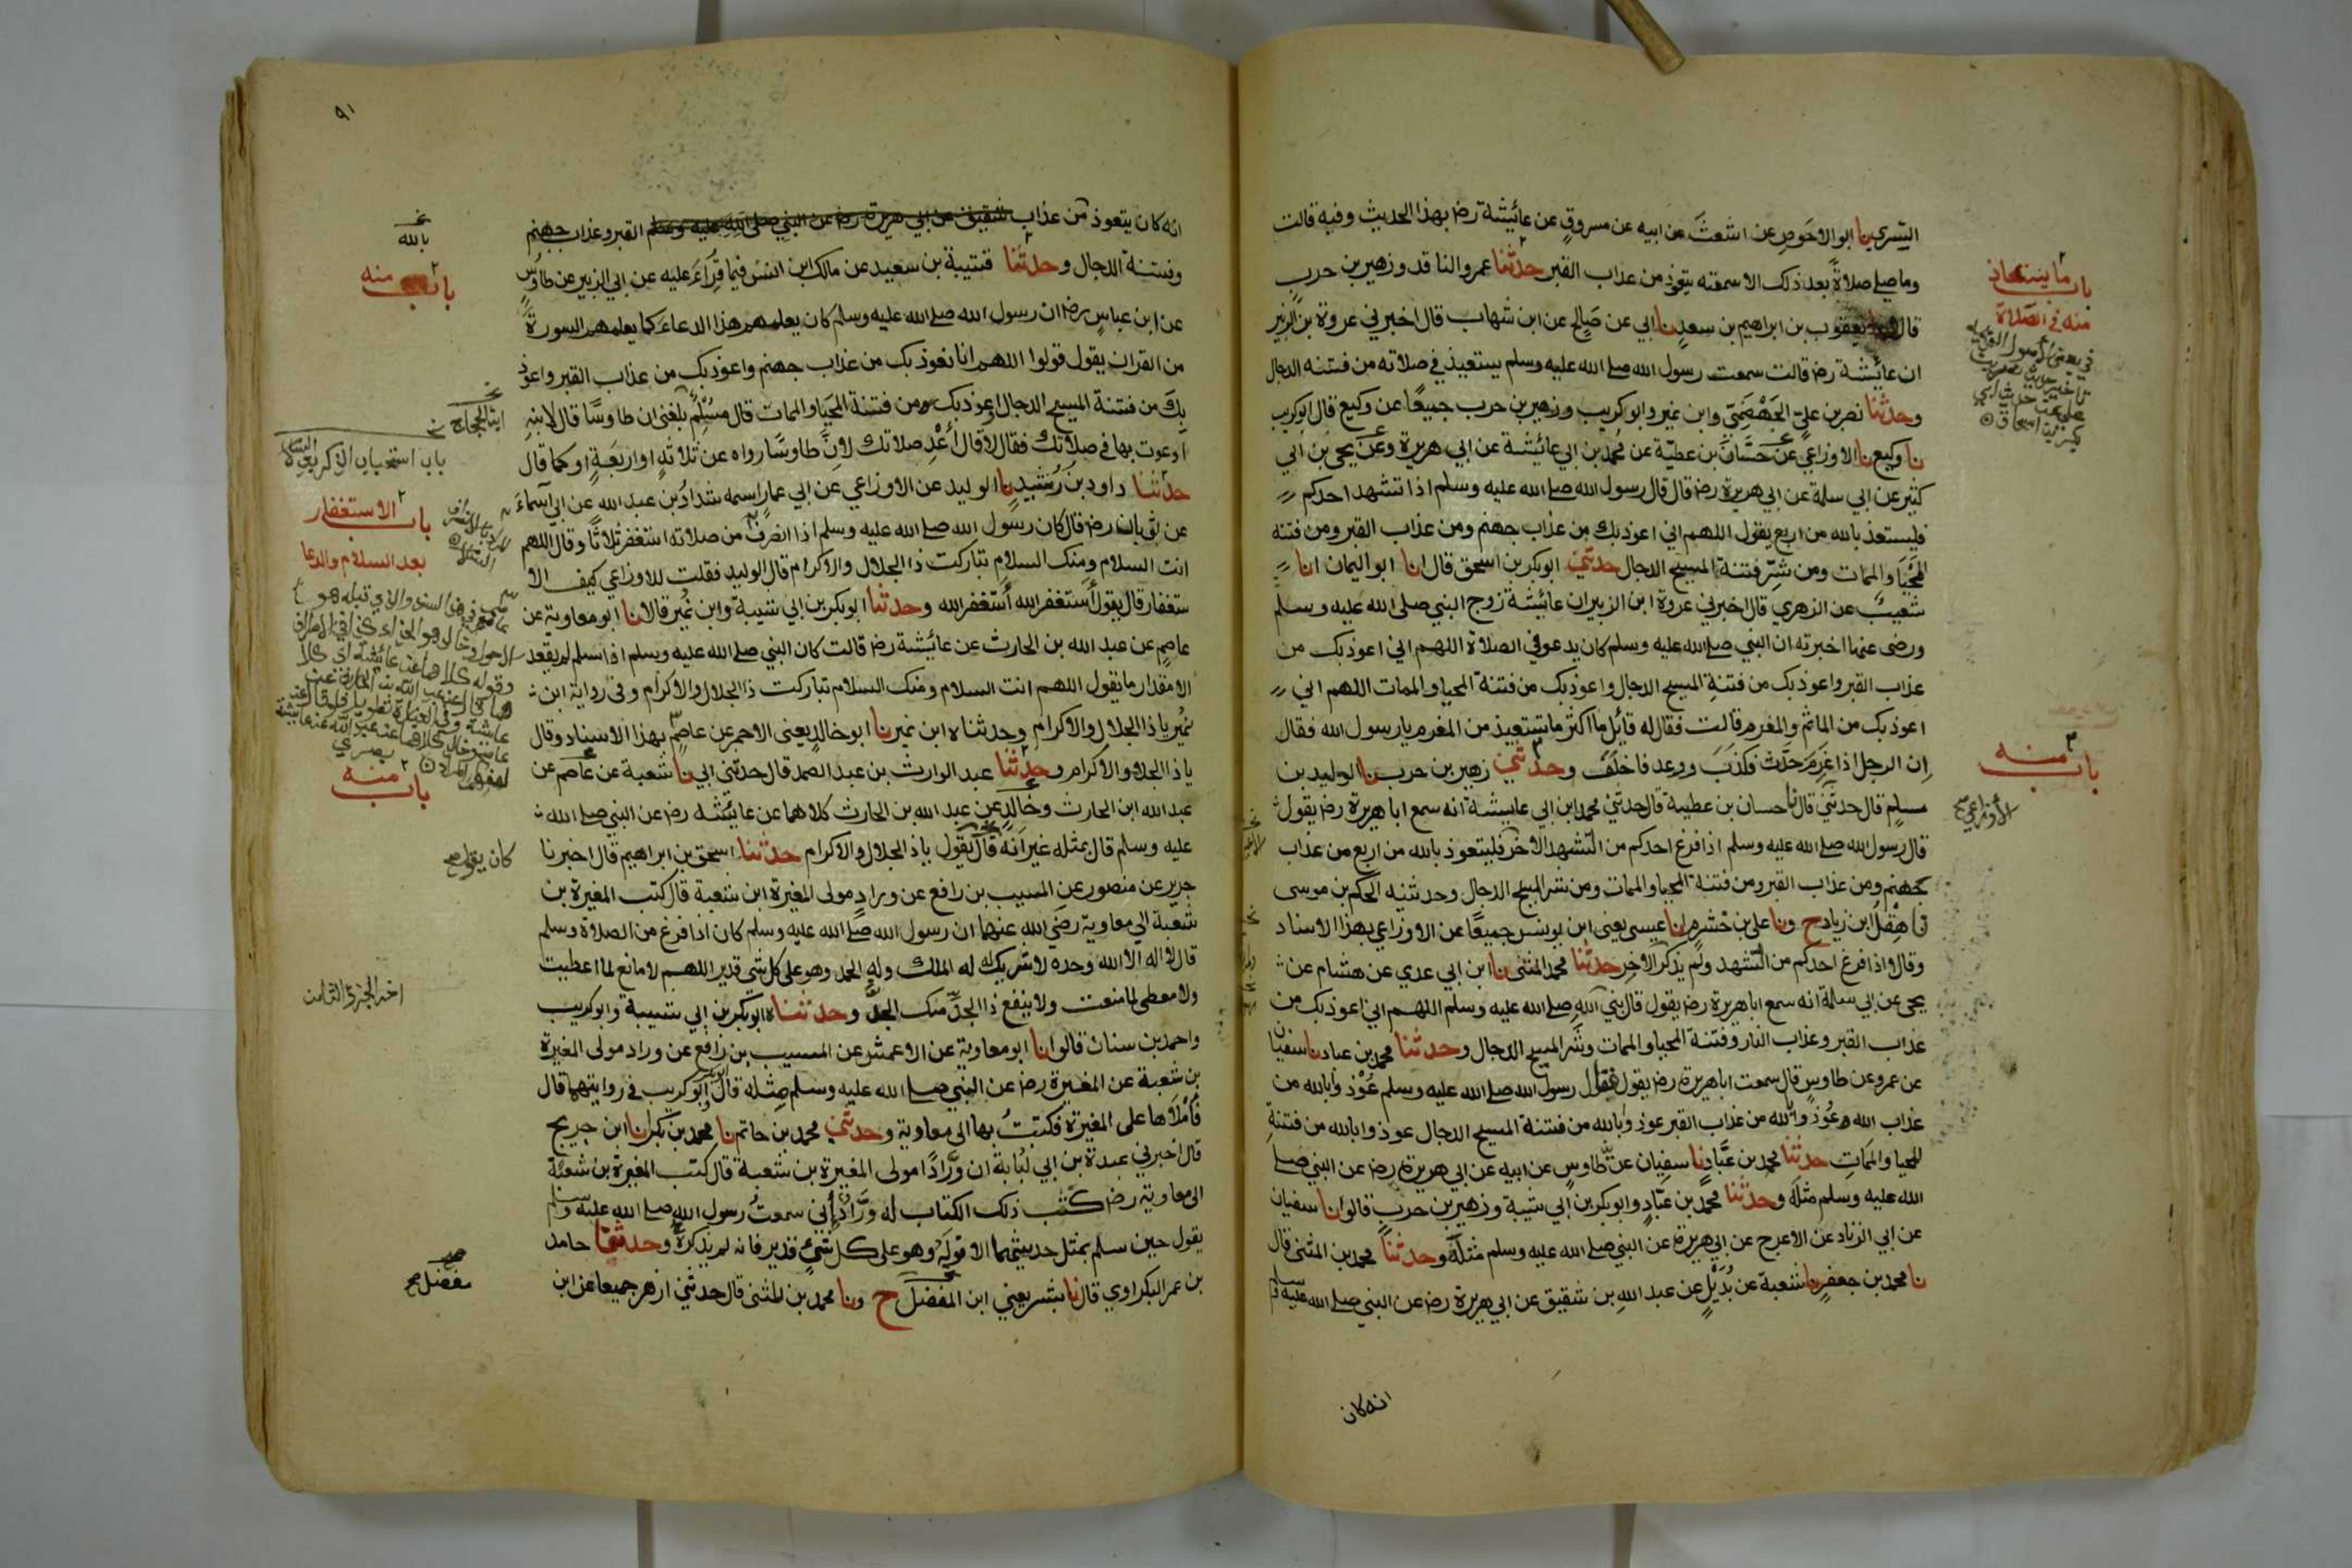 السري نا ابو الاحوص عن اشعث عن ابيه عن مسروق عن عائشة رضـ بهذا الحديث وفيه قالت
وما صلى صلاة بعد ذلك الا سمعته يتعوذ من عذاب القبر حدثنا عمرو الناقد وزهير بن حرب
قال يعقوب بن ابراهيم بن سعد نا ابي عن صالح عن ابن شهاب قال اخبرني عروة بن الزبير
ان عائشة رضـ قالت سمعت رسول الله صلى الله عليه وسلم يستعيذ في صلاته من فتنه الدجال
وحدثنا نصر بن علي الجهضمي وابن نمير وابو كريب وزهير بن حرب جميعا عن وكيع قال ابو كريب
نا وكيع نا الاوزاعي عن حسان بن عطية عن محمد بن ابي عائشة عن ابي هريرة وعن يحيى بن ابي
كثير عن ابي سلمة عن ابي هريرة رضـ قال قال رسول الله صلى الله عليه وسلم اذا تشهد احدكم
فليستعذ بالله من اربع يقول اللهم اني اعوذ بك من عذاب جهنم ومن عذاب القبر ومن فتنه
المحيا والممات ومن شر فتنة المسيح الدجال حدثني ابو بكر بن اسحق قال انا ابو اليمان انا
شعيب عن الزهري قال اخبرني عروة ابن الزبير ان عائشة زوج النبي صلى الله عليه وسلم
ورضى عنها اخبرته ان النبي صلى الله عليه وسلم كان يدعو في الصلاة اللهم اني اعوذ بك من
عذاب القبر واعوذ بك من فتنة المسيح الدجال واعوذ بك من فتنة المحيا والممات اللهم اني
اعوذ بك من الماثم والمغرم قالت فقال له قائل ما اكثر ما تستعيذ من المغرم يا رسول الله فقال
ان الرجل اذا غرم حدث فكذب ووعد فاخلف وحدثني زهير بن حرب نا الوليد بن
مسلم قال حدثني قال نا حسان بن عطية قال حدثني محمد ابن ابي عايشة انه سمع ابا هريرة رضـ يقول
قال رسول الله صلى الله عليه وسلم اذا فرغ احدكم من التشهد الاخر فليتعوذ بالله من اربع من عذاب
جهنم ومن عذاب القبر ومن فتنة المحيا والممات ومن شر المسيح الدجال وحدثنيه الحكم بن موسى
نا هقل ابن زياد ح ونا علي بن خشرم نا عيسى يعنى ابن يونس جميعا عن الاوزاعي بهذا الاسناد
وقال اذا فرغ احدكم من التشهد ولم يذكر الاخر حدثنا محمد المثنى نا ابن ابي عدي عن هشام عن
يحيى عن ابي سلمة انه سمع ابا هريرة رضـ يقول قال نبي الله صلى الله عليه وسلم اللهم اني اعوذ بك من
عذاب القبر وعذاب النار وفتنة المحيا والممات وشر المسيح الدجال وحدثنا محمد بن عباد نا سفيان
عن عمرو عن طاوس قال سمعت ابا هريرة رضـ يقول قال رسول الله صلى الله عليه وسلم عوذوا بالله من
عذاب الله وعوذوا بالله من عذاب القبر عوذوا بالله من فتنة المسيح الدجال عوذوا بالله من فتنة
المحيا والممات حدثنا محمد بن عباد نا سفيان عن طاوس عن ابيه عن ابي هريرة رضـ عن النبي صلى
الله عليه وسلم مثله وحدثنا محمد بن عباد وابو بكر بن ابي شيبة وزهير بن حرب قالوا نا سفيان
عن ابي الزناد عن الاعرج عن ابي هريرة عن النبي صلى الله عليه وسلم مثله وحدثنا محمد بن المثنى قال
نا محمد بن جعفر نا شعبة عن بديل عن عبد الله بن شقيق عن ابي هريرة رضـ عن النبي صلى الله عليه وسلم
انه كان
باب ما يستعاذ
منه في الصلاة
باب منه
الأوزاعي صح
٩١
انه كان يتعوذ من عذاب شقيق عن ابي هريرة رضـ عن النبي صلى الله عليه وسلم القبر وعذاب جهنم
وفتنة الدجال وحدثنا قتيبة بن سعيد عن مالك ابن انس فيما قراء عليه عن ابي الزبير عن طاوس
عن ابن عباس رضـ ان رسول الله صلى الله عليه وسلم كان يعلمهم هذا الدعاء كما يعلمهم السورة
من القران يقول قولوا اللهم انا نعوذ بك من عذاب جهنم واعوذ بك من عذاب القبر واعوذ
بك من فتنة المسيح الدجال اعوذ بك ومن فتنة المحيا والممات قال مسلم بلغني ان طاوسا قال لابنه
ادعوت بها في صلاتك فقال لا قال أعد صلاتك لان طاوسا رواه عن ثلاثه او اربعة او كما قال
حدثنا داود بن رشيد نا الوليد عن الاوزاعي عن ابي عمار اسمه شداد بن عبد الله عن ابي اسماء
عن ثوبان رضـ قال كان رسول الله صلى الله عليه وسلم اذا انصرف من صلاته استغفر ثلاثا وقال اللهم
انت السلام ومنك السلام تباركت ذا الجلال والاكرام قال الوليد فقلت للاوزاعي كيف الا
ستغفار قال يقول أستغفر الله أستغفر الله وحدثنا ابو بكر بن ابي شيبة وابن نمير قالا نا ابو معاوية عن
عاصم عن عبد الله بن الحارث عن عائشة رضـ قالت كان النبي صلى الله عليه وسلم اذا سلم لم يقعد
الا مقدار ما يقول اللهم انت السلام ومنك السلام تباركت ذا الجلال والاكرام وفى رواية ابن
نمير يا ذا الجلال والاكرام وحدثناه ابن نمير نا ابو خالد يعنى الاحمر عن عاصم بهذا الاسناد وقال
يا ذا الجلال والاكرام وحدثنا عبد الوارث بن عبد الصمد قال حدثني ابي نا شعبة عن عاصم عن
عبد الله ابن الحارث وخالد عن عبد الله بن الحارث كلاهما عن عائشه رضـ عن النبي صلى الله
عليه وسلم قال بمثله غير انه قال يقول يا ذا الجلال والاكرام حدثنا اسحق بن ابراهيم قال اخبرنا
جرير عن منصور عن المسيب بن رافع عن وراد مولى المغيرة ابن شعبة قال كتب المغيرة بن
شعبة الي معاوية رضي الله عنهما ان رسول الله صلى الله عليه وسلم كان اذا فرغ من الصلاة وسلم
قال لا اله الا الله وحده لا شريك له له الملك وله الحمد وهو على كل شى قدير اللهم لا مانع لما اعطيت
ولا معطى لما منعت ولا ينفع ذا الجد منك الجد وحدثناه ابو بكر بن ابي شيبة وابو كريب
واحمد بن سنان قالوا نا ابو معاوية عن الاعمش عن المسيب بن رافع عن وراد مولى المغيرة
بن شعبة عن المغيرة رضـ عن النبي صلى الله عليه وسلم مثله قال ابو كريب في روايتهما قال
فأملاها على المغيرة فكتبت بها الى معاوية وحدثني محمد بن حاتم نا محمد بن بكر انا ابن جريج
قال اخبرني عبدة بن ابي لبابة ان ورادا مولى المغيرة بن شعبة قال كتب المغيرة بن شعبة
الى معاوية رضـ كتب ذلك الكتاب له وراد إني سمعت رسول الله صلى الله عليه وسلم
يقول حين سلم بمثل حديثهما الا قوله وهو على كل شئ قدير فانه لم يذكره وحدثنا حامد
بن عمر البكراوي قال نا بشر يعني ابن المفضل ح ونا محمد بن المثنى قال حدثني ازهر جميعا عن ابن
بالله
باب منه
ابن الحجاج
باب استحباب الذكر بعد
باب الاستغفار
بعد السلام والدعا
باب منه
كان يقول صح
اخر الجزء الثامن
مفضل صح